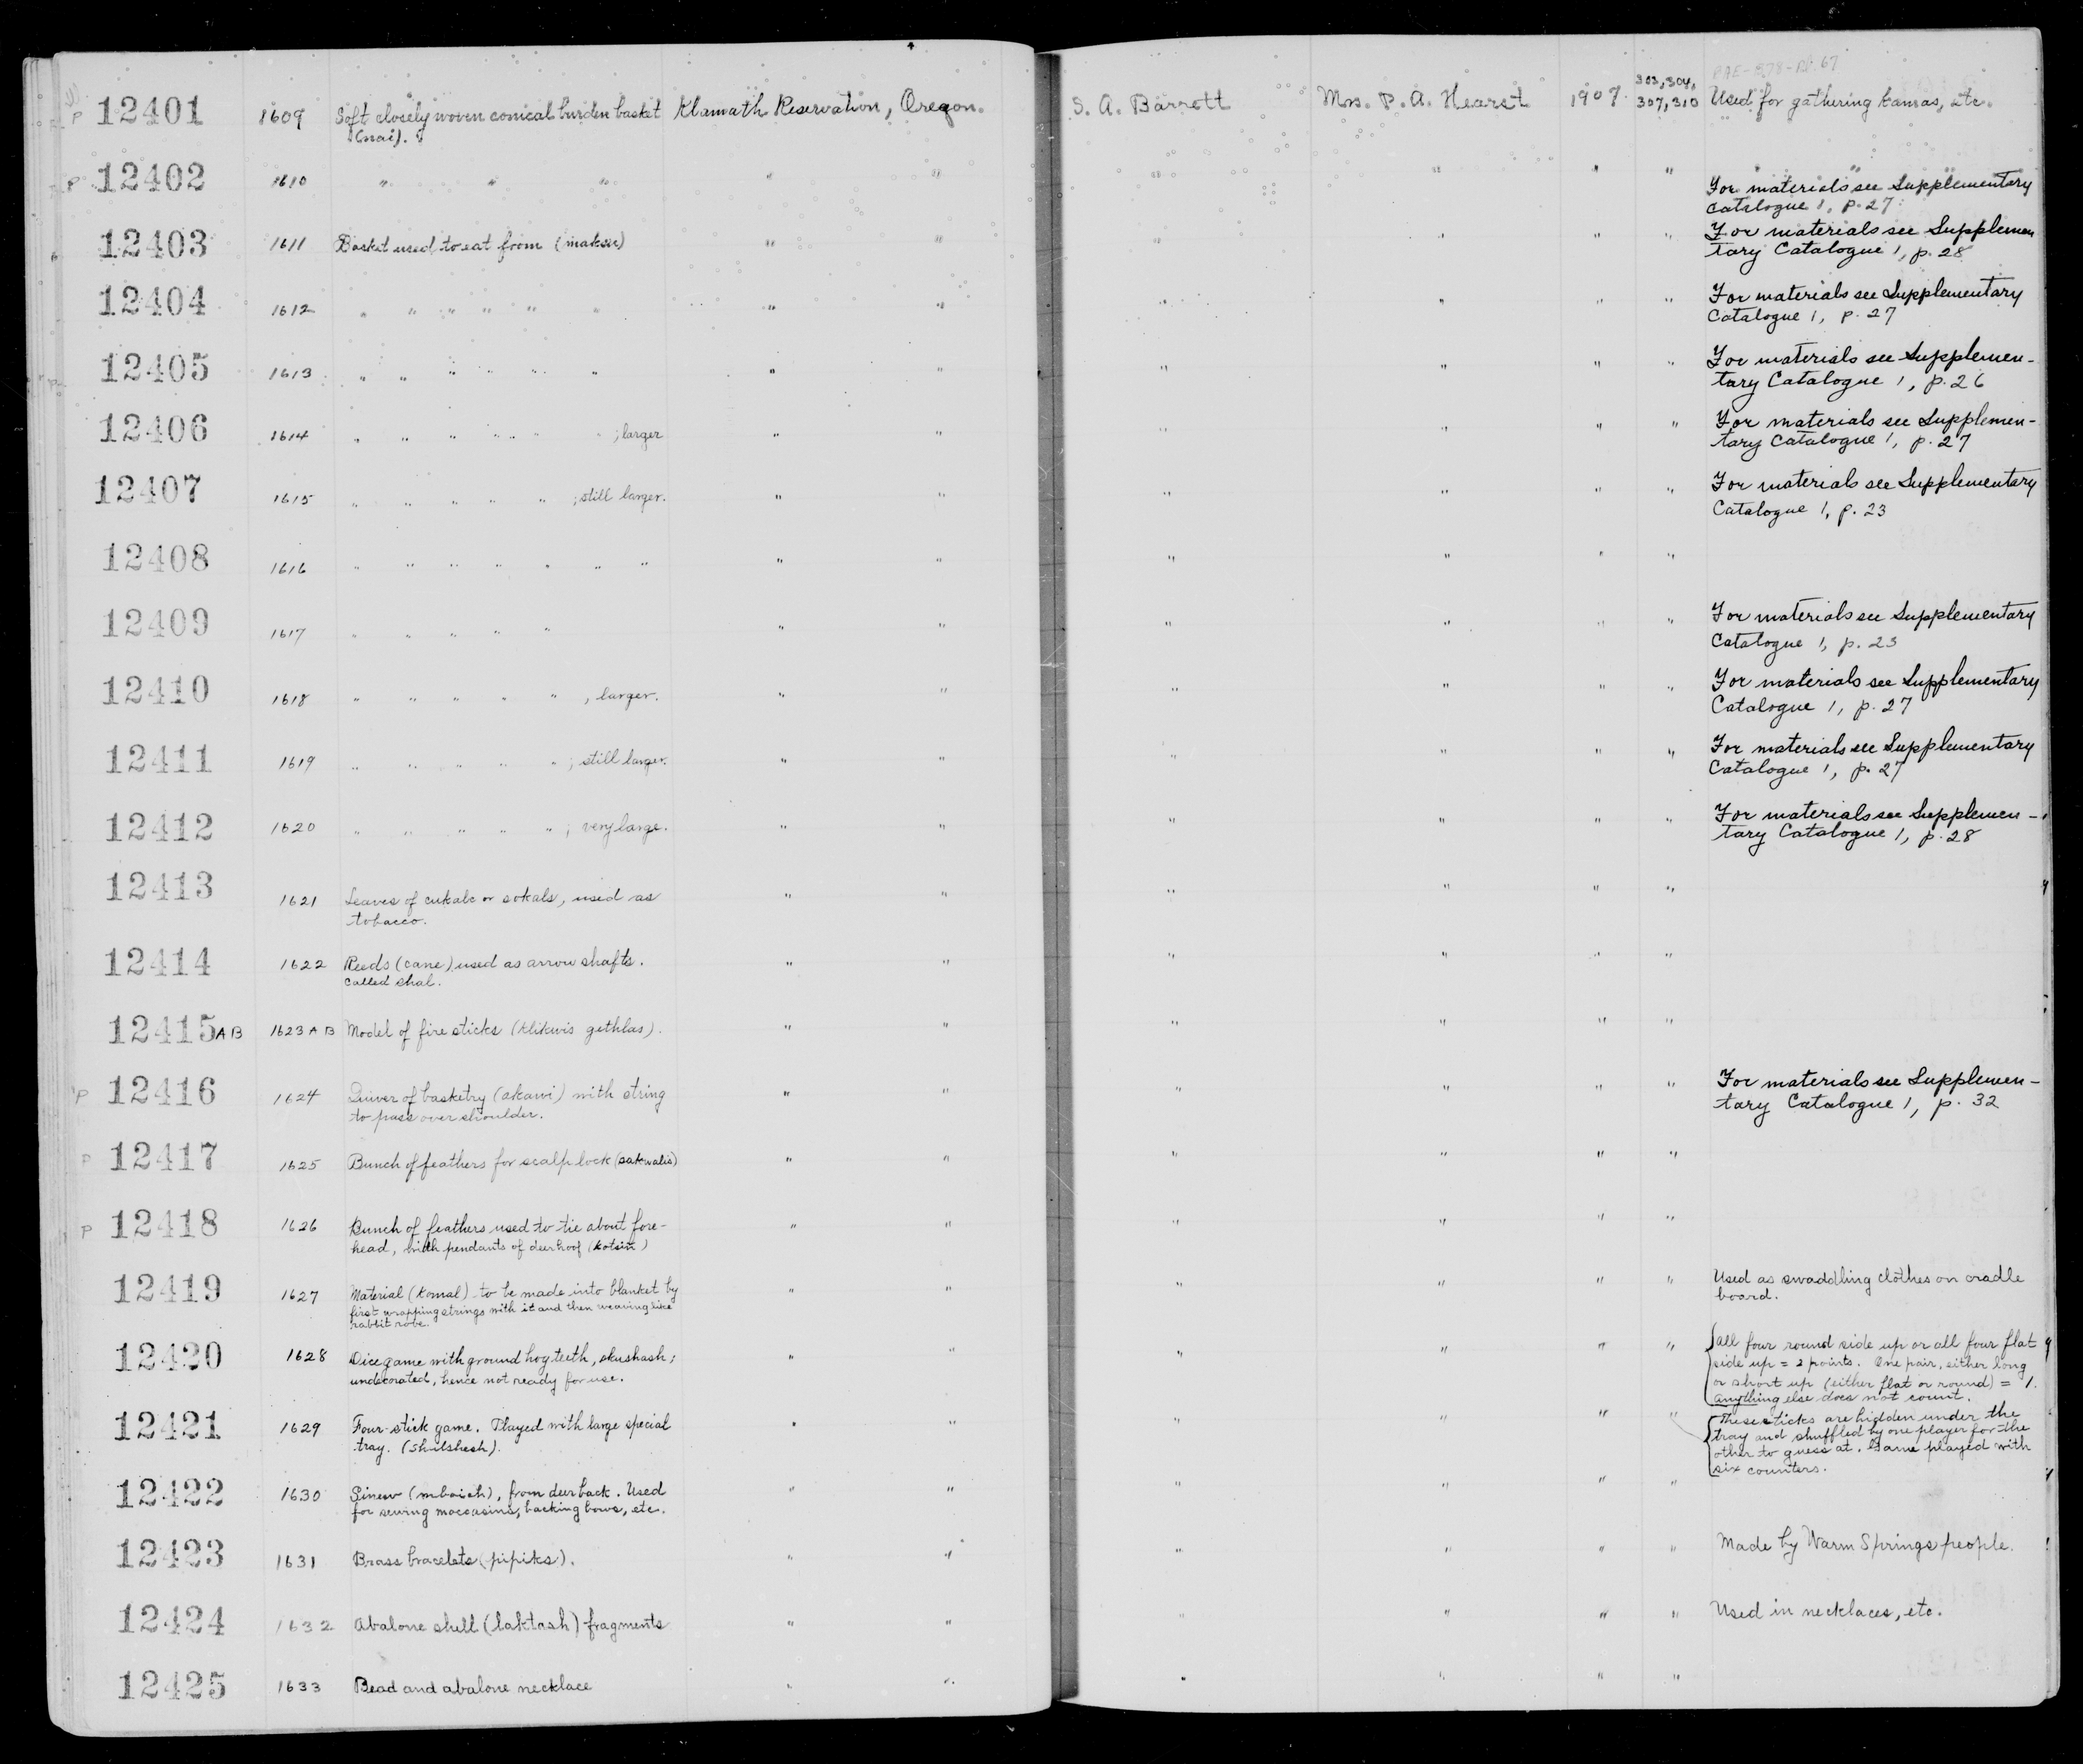 BAE-B78-Pl.67
303, 304,
P 12401 1609 Soft closely woven conical burden basket Klamath Reservation, Oregon. S. A. Barrett Mrs. P. A. Hearst 1907 307, 310 Used for gathering kamas, etc.
(nai).
P 12402 1610 " " " " " " " " " " "
For materials see Supplementary
Catalogue 1, p. 27
12403 1611 Basket used to eat from (maksu) " " " " " " For materials see Supplemen
tary Catalogue 1, p. 28
12404 1612 " " " " " " " " " " " " For materials see Supplementary
Catalogue 1, p. 27
12405 1613 " " " " " " " " " " " " For materials see Supplemen-
tary Catalogue 1, p. 26
12406 1614 " " " " " " " ; larger " " " " " " For materials see Supplemen-
tary Catalogue 1, p. 27
12407 1615 " " " " " ; still larger. " " " " " " For materials see Supplementary
Catalogue 1, p. 23
12408 1616 " " " " " " " " " " " " "
12409 1617 " " " " " " " " " " " For materials see Supplementary
Catalogue 1, p. 23
12410 1618 " " " " " , larger. " " " " " " For materials see Supplementary
Catalogue 1, p. 27
12411 1619 " " " " " ; still larger. " " " " " " For materials see Supplementary
Catalogue 1, p. 27
12412 1620 " " " " " ; very large. " " " " " " For materials see Supplemen-
tary Catalogue 1, p. 28
12413 1621 Leaves of cukalc or sokals, used as " " " " " "
tobacco.
12414 1622 Reeds (cane) used as arrow shafts. " " " " " "
Called shal.
12415 AB 1623 A B Model of fire sticks (klikwis gethlas). " " " " " "
P 12416 1624 Quiver of basketry (akawi) with string " " " " " " For materials see Supplemen-
to pass over shoulder. tary Catalogue 1, p. 32
P 12417 1625 Bunch of feathers for scalp lock (sakwalis) " " " " " "
P 12418 1626 Bunch of feathers used to tie about fore- " " " " " "
head, with pendants of deer hoof (kotsin)
12419 1627 Material (komal) to be made into blanket by " " " " " " Used as swaddling clothes on cradle
first wrapping strings with it and then weaving like board.
rabbit robe.
12420 1628 Dice game with ground hog teeth, skushash; " " " " " " all four round side up or all four flat
undecorated, hence not ready for use. side up = 2 points. One pair, either long
or short up (either flat or round) = 1.
anything else does not count.
12421 1629 Four-stick game. Played with large special " " " " " " These sticks are hidden under the
tray. (shulshesh). tray and shuffled by one player for the
other to guess at. Game played with
six counters.
12422 1630 Sinew (mbaish), from deer back. Used " " " " " "
for sewing moccasins, backing bows, etc.
12423 1631 Brass bracelets (pipiks). " " " " " " Made by Warm Springs people.
12424 1632 Abalone shell (laktash) fragments " " " " " " Used in necklaces, etc.
12425 1633 Bead and abalone necklace " " " " " "